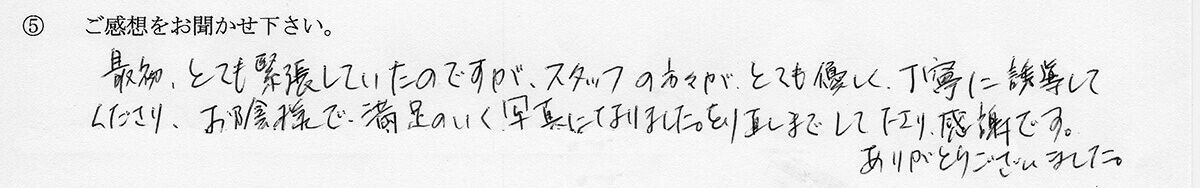 ⑤ ご感想をお聞かせ下さい。
最初、とても緊張していたのですが、スタッフの方々が、とても優しく、丁寧に誘導して
くださり、お陰様で、満足のいく写真になりました。とり直しまでして下さり、感謝です。
ありがとうございました。